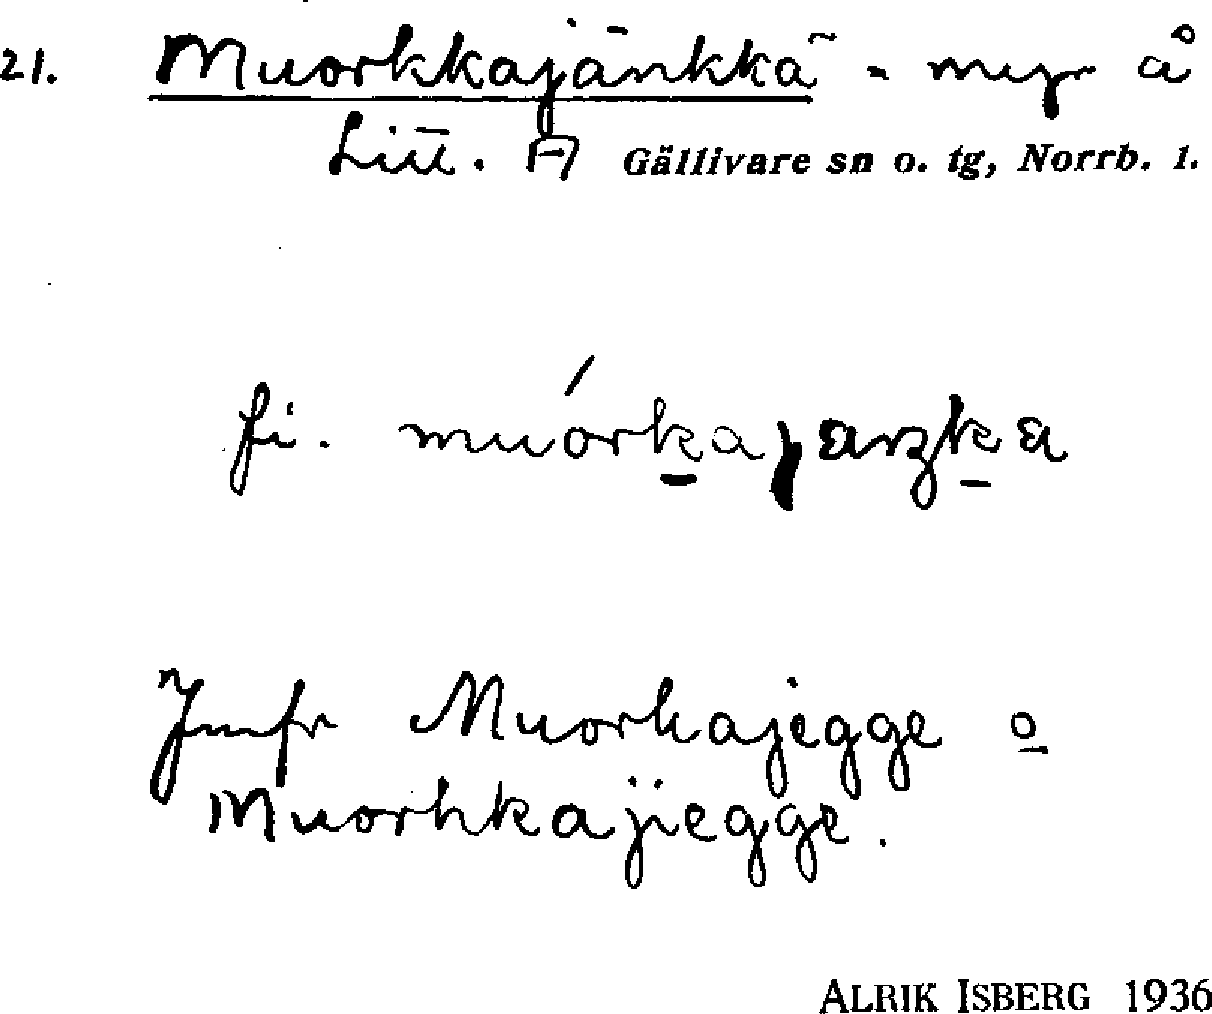 21. Muorkkajänkkä - myr å
Litt. A Gällivare sn o. tg, Norrb. l.
fi. muórḵaȷaŋḵa
Jmfr Muorkajegge o
Muorhkajiegge.
ALRIK ISBERG 1936